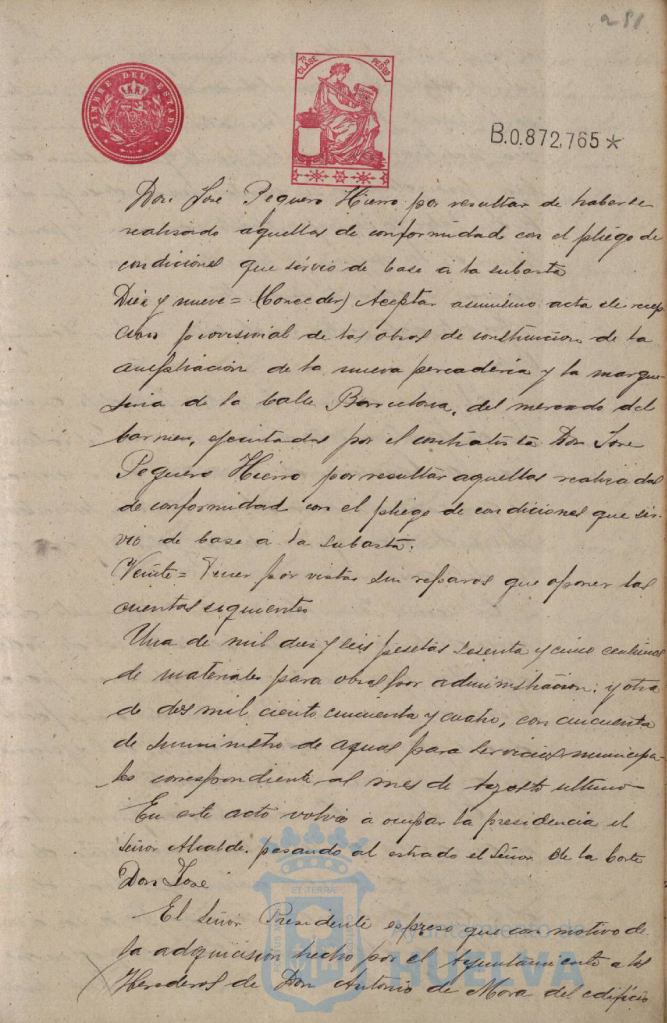 281
TIMBRE DEL ESTADO
7ª CLASE
2 PESOS
B.0.872,765*
Don José Peguero Hierro por resultar de haberse
realisado aquellas de conformidad con el pliego de
condiciones que sirvió de base a la subasta
Diez y nueve = (Conceder) Aceptar asimismo acta de recep
cion provisional de las obras de construccion de la
ampliacion de la nueva pescaderia y la marque
sina de la Calle Barcelona, del mercado del
Carmen, ejecutadas por el contratista Don José
Peguero Hierro por resultar aquellas realizadas
de conformidad con el pliego de condiciones que sir-
vió de base a la subasta.
Veinte = Tener por vistas sin reparos que oponer las
cuentas siguientes
Una de mil diez y seis pesetas sesenta y cinco centimos
de materiales para obras por administracion; y otra
de dos mil ciento cincuenta y cuatro, con cincuenta
de suministro de aguas para servicios municipa-
les correspondiente al mes de Agosto ultimo
En este acto volvió a ocupar la presidencia el
Señor Alcalde, pasando al estrado el Señor de la Corte
Don José
El Señor Presidente expreso que con motivo de
la adquicision hecho por el Ayuntamiento a los
Herederos de Don Antonio de Mora del edificio
ET TERRA
Ayuntamiento de
HUELVA